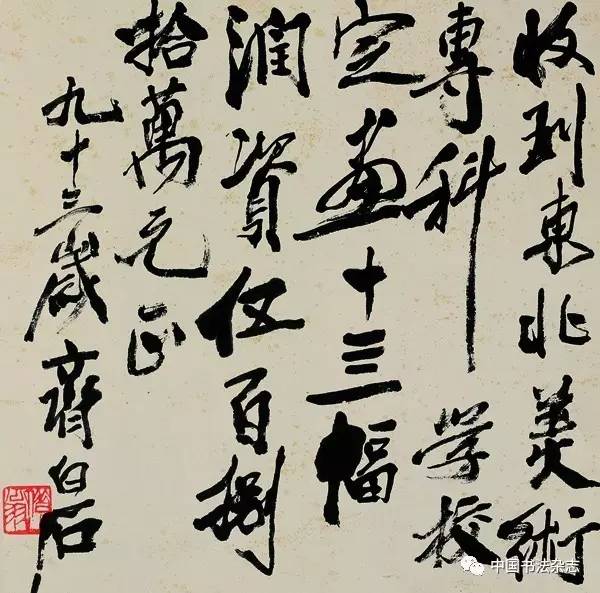 收到東北美術
專科學校
定画十三幅
潤資伍百捌
拾萬元正
九十三歲齊白石
中国书法杂志